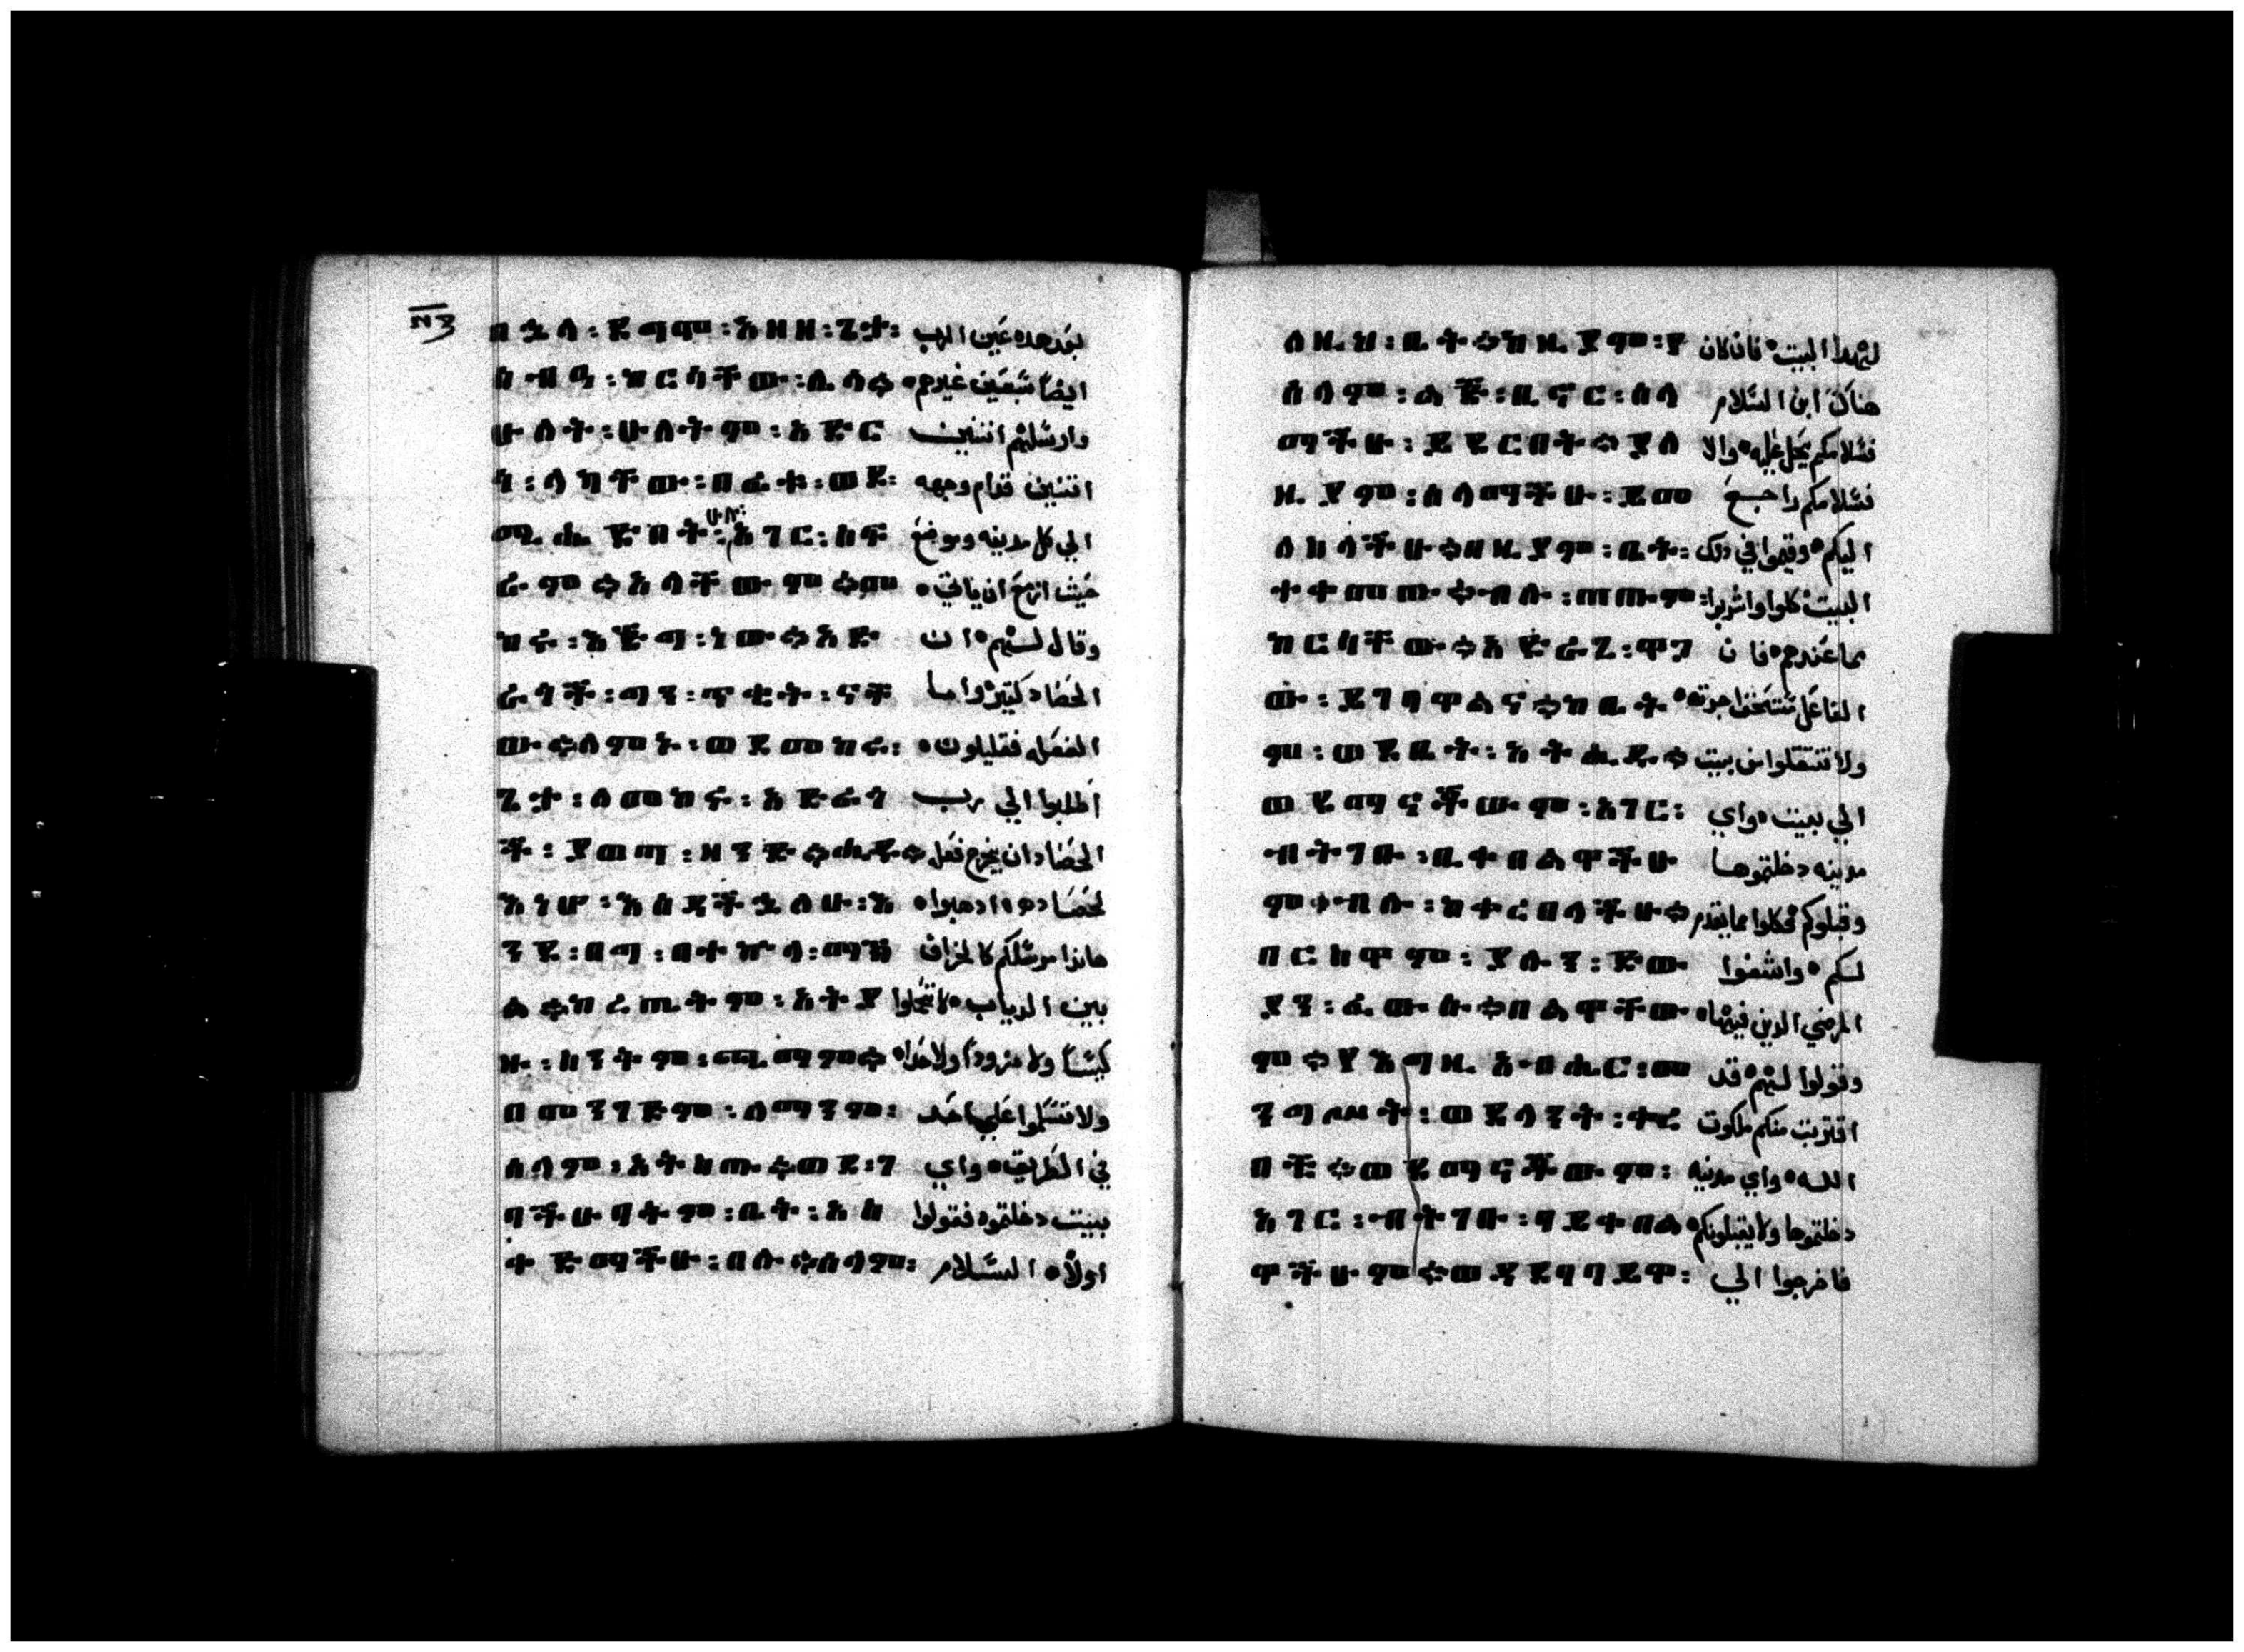 በኋለ፡ደግሞ፡አዘዘ፡ጌታ፡ بعد هده عين الرب
ሰብዓ፡ከርሳቸው፡ሌላ። ايضا سبعين غيرهم
ሁለት፡ሁለትም፡አድር وارسلهم اتنين
ጎ፡ላካቸው፡በፊቱ፡ወደ፡ اتنين قدام وجهه
ሚሔድበት፡ሁሉ፡አገር፡ስፍ الي كل مدينه وموضع
ራም።አላቸውም።መ حيث ازمع ان ياتي
ከሩ፡እጅግ፡ነው።አድ وقال لهم ان
ራጊች፡ማን፡ጥቂት፡ናቸ الحصاد كتير واما
ው።ለምኑ፡ወደ፡መከሩ፡ الفعله فقليلون
ጌታ፡ለመከሩ፡አድራጊ اطلبوا الي رب
ች፡ያወጣ፡ዘንድ።ሒዱ። الحصاد ان يخرج فعله
እነሆ፡እሰዳችኋለሁ፡እ لحصاده ادهبوا
ንደ፡በግ፡በተኵላ፡መካከ هاندا مرسلكم كالخراف
ል።ከረጢትም፡አትያ بين الدياب لا تحملوا
ዙ፡ከንቱም፡ጫማም። كيسا ولا مزودا ولا حدا
በመንገድም፡ለማንም፡ ولا تسلموا علي احد
ሰላም፡አትስጡ።ወደ፡ገ في الطريق واي
ባችሁባትም፡ቤት፡አስ بيت دخلتموه فقولوا
ቀድማችሁ፡በሉ።ሰላም፡ اولا السلام
ለዚህ፡ቤት።ከዚያም፡የ لهدا البيت فان كان
ሰላም፡ልጅ፡ቢኖር፡ሰላ هناك ابن السلام
ማችሁ፡ይደርበት።ያለ فسلامكم يحل عليه والا
ዚያም፡ሰላማችሁ፡ይመ فسلامكم راجع
ለስላችሁ።በዚያም፡ቤት፡ اليكم وقيموا في دلك
ተቀመጡ።ብሉ፡ጠጡም፡ البيت كلوا واشربوا
ከርሳቸው።አድራጊ፡ዋጋ مما عندهم فان
ው፡ይገባዋልና።ከቤት الفاعل مستحق اجرته
ም፡ወደቤት፡አትሒዱ። ولا تنتقلوا من بيت
ወደማናቸውም፡አገር፡ الي بيت واي
ብትገቡ፡ቢቀበልዋችሁ مدينه دخلتموها
ም።ብሉ፡ከቀረበላችሁ። وقبلوكم فكلوا مما يقدم
በርስዋም፡ያሉን፡ድው لكم واشفوا
ያን፡ፈውሱ።በልዋቸው المرضي الدين فيها
ም።የእግዚአብሔር፡መ وقولوا لهم قد
ንግሥት፡ወደላንት፡ቀረ اقتربت منكم ملكوت
በች።ወደማናቸውም፡ الله واي مدينه
አገር፡ብትገቡ፡ባይቀበል دخلتموها ولا يقبلونكم
ዋችሁም።ወደደባባይዋ፡ فاخرجوا الي